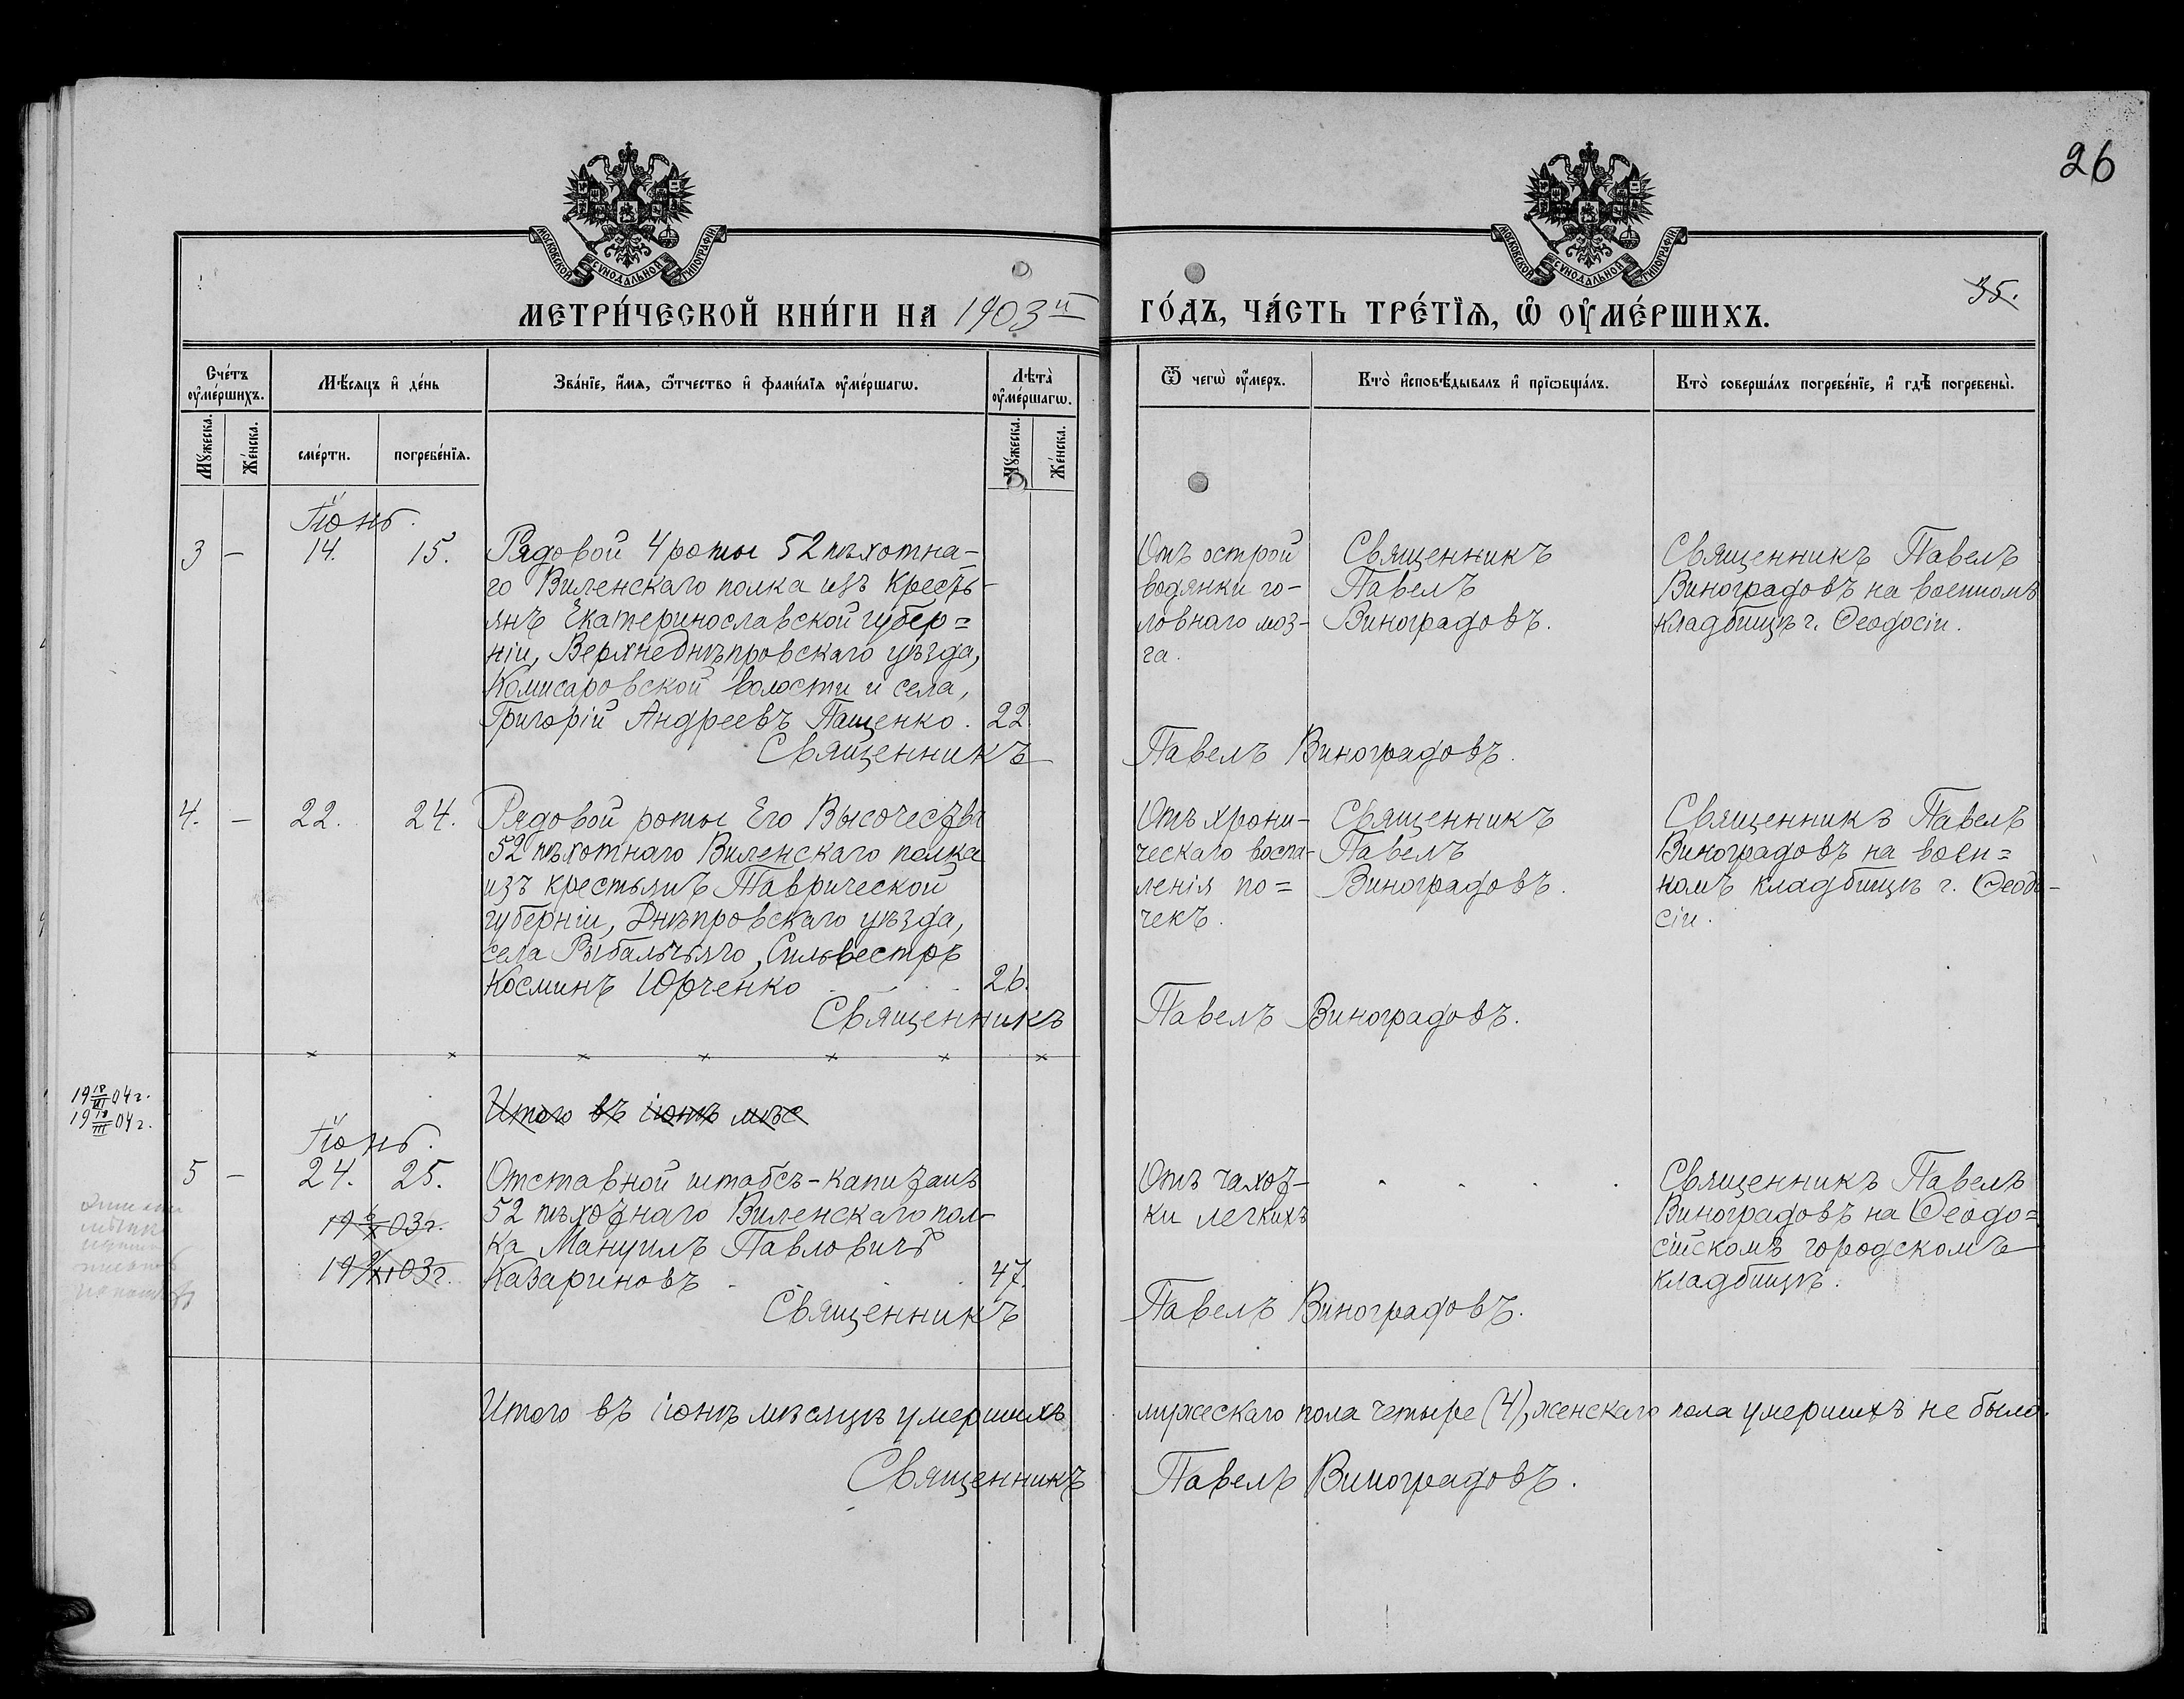 26
МОСКОВСКОЙ СУНОДАЛЬНОЙ ТИПОГРАФІИ
МОСКОВСКОЙ СУНОДАЛЬНОЙ ТИПОГРАФІИ
35.
МЕТРИ́ЧЕСКОЙ КНИ́ГИ НА 1903й ГО́ДЪ, ЧА́СТЬ ТРЕ́ТЇѦ, Ѡ҆ ОУ҆МЕ́РШИХЪ.
Сче́тъ оу҆ме́ршихъ.
Мꙋ́жеска.
Же́нска.
Мѣ́сяцъ и҆ де́нь
сме́рти.
погребе́нїѧ.
Зва́нїе, и҆́мѧ, ѻ҆́тчество и҆ фами́лїѧ оу҆ме́ршагѡ.
Лѣ́та оу҆ме́ршагѡ.
Мꙋ́жеска.
Же́нска.
Ѿ чегѡ̀ оу҆́меръ.
Кто̀ и҆сповѣ́дывалъ и҆ прїѡбща́лъ.
Кто̀ соверша́лъ погребе́нїе, и҆ гдѣ̀ погребены̀.
Іюнь.
3 — 14. 15.
Рядовой 4 роты 52 пѣхотна-
го Виленскаго полка изъ кресть-
янъ Екатеринославской губер=
ніи, Верхнеднѣпровскаго уѣзда,
Комисаровской волости и села,
Григорій Андреевъ Пащенко. 22
Отъ острой
водянки го-
ловнаго моз-
га.
Священникъ
Павелъ
Виноградовъ.
Священникъ Павелъ
Виноградовъ на военномъ
кладбищѣ г. Ѳеодосіи.
Священникъ Павелъ Виноградовъ.
4. — 22. 24.
Рядовой роты Его Высочества
52 пѣхотнаго Виленскаго полка
изъ крестьянъ Таврической
губерніи, Днѣпровскаго уѣзда,
села Рыбальчьяго, Сильвестръ
Косминъ Юрченко . . . 26.
Отъ хрони-
ческаго воспа-
ленія по=
чекъ.
Священникъ
Павелъ
Виноградовъ.
Священникъ Павелъ
Виноградовъ на воен=
номъ кладбищѣ г. Ѳеодо-
сіи.
Священникъ Павелъ Виноградовъ.
19 18/III 04 г.
19 18/III 04 г.
Итого въ іюнѣ мѣс
Іюнь.
5 — 24. 25.
03 г.
03 г.
Отставной штабсъ-капитанъ
52 пѣхотнаго Виленскаго пол-
ка Мануилъ Павловичъ
Казариновъ . . 47.
Отъ чахот-
ки легкихъ
Священникъ Павелъ
Виноградовъ на Ѳеодо=
сійскомъ городскомъ
кладбищѣ.
Священникъ Павелъ Виноградовъ.
Итого въ іюнѣ мѣсяцѣ умершихъ мужескаго пола четыре (4), женскаго пола умершихъ не было.
Священникъ Павелъ Виноградовъ.